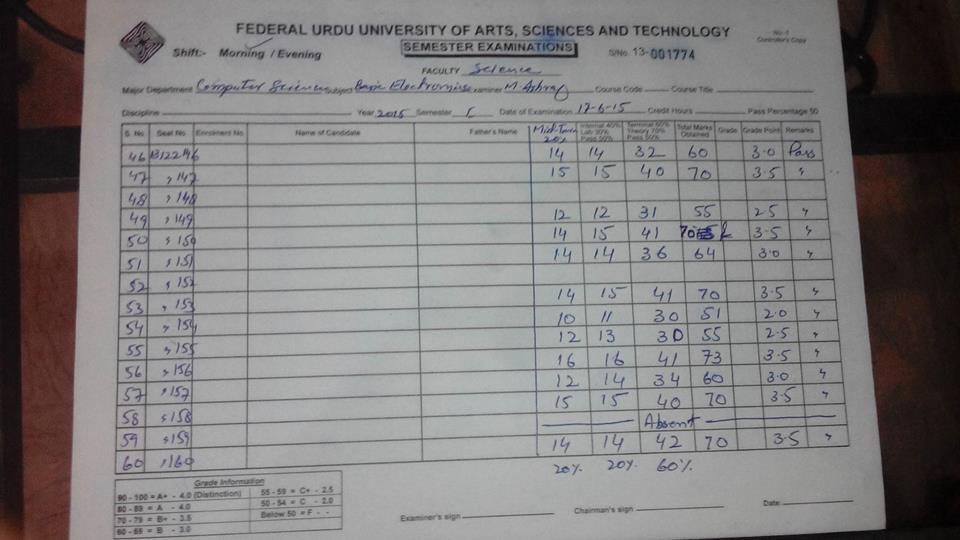 FEDERAL URDU UNIVERSITY OF ARTS, SCIENCES AND TECHNOLOGY
No.-1
Controller's Copy
Shift:- Morning / Evening
SEMESTER EXAMINATIONS
S/No. 13-001774
FACULTY Science
Major Department Computer Science Subject Basic Electronics Examiner M. Ashraf Course Code Course Title
Discipline Year 2015 Semester I Date of Examination 17-6-15 Credit Hours Pass Percentage 50
S. No Seat No. Enrolment No. Name of Candidate Father's Name Mid-Term 20% Internal 40% Lab 30% Pass 50% Terminal 60% Theory 70% Pass 50% Total Marks Obtained Grade Grade Point Remarks
46 B122146 14 14 32 60 3.0 Pass
47 " 147 15 15 40 70 3.5 "
48 " 148
49 " 149 12 12 31 55 2.5 "
50 " 150 14 15 41 70 3.5 "
51 " 151 14 14 36 64 3.0 "
52 " 152
53 " 153 14 15 41 70 3.5 "
54 " 154 10 11 30 51 2.0 "
55 " 155 12 13 30 55 2.5 "
56 " 156 16 16 41 73 3.5 "
57 " 157 12 14 34 60 3.0 "
58 " 158 15 15 40 70 3.5 "
59 " 159 Absent
60 " 160 14 14 42 70 3.5 "
20% 20% 60%
Grade Information
90 - 100 = A+ - 4.0 (Distinction) 55 - 59 = C+ - 2.5
80 - 89 = A - 4.0 50 - 54 = C - 2.0
70 - 79 = B+ - 3.5 Below 50 = F - -
60 - 69 = B - 3.0
Examiner's sign Chairman's sign Date